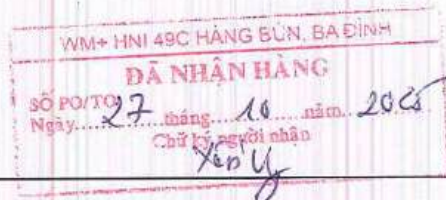 WM+ HNI 49C HÀNG BÚN, BA ĐÌNH
ĐÃ NHẬN HÀNG
SỐ PO/TO
Ngày.....27.....tháng.....10.....năm..2025
Chữ ký người nhận